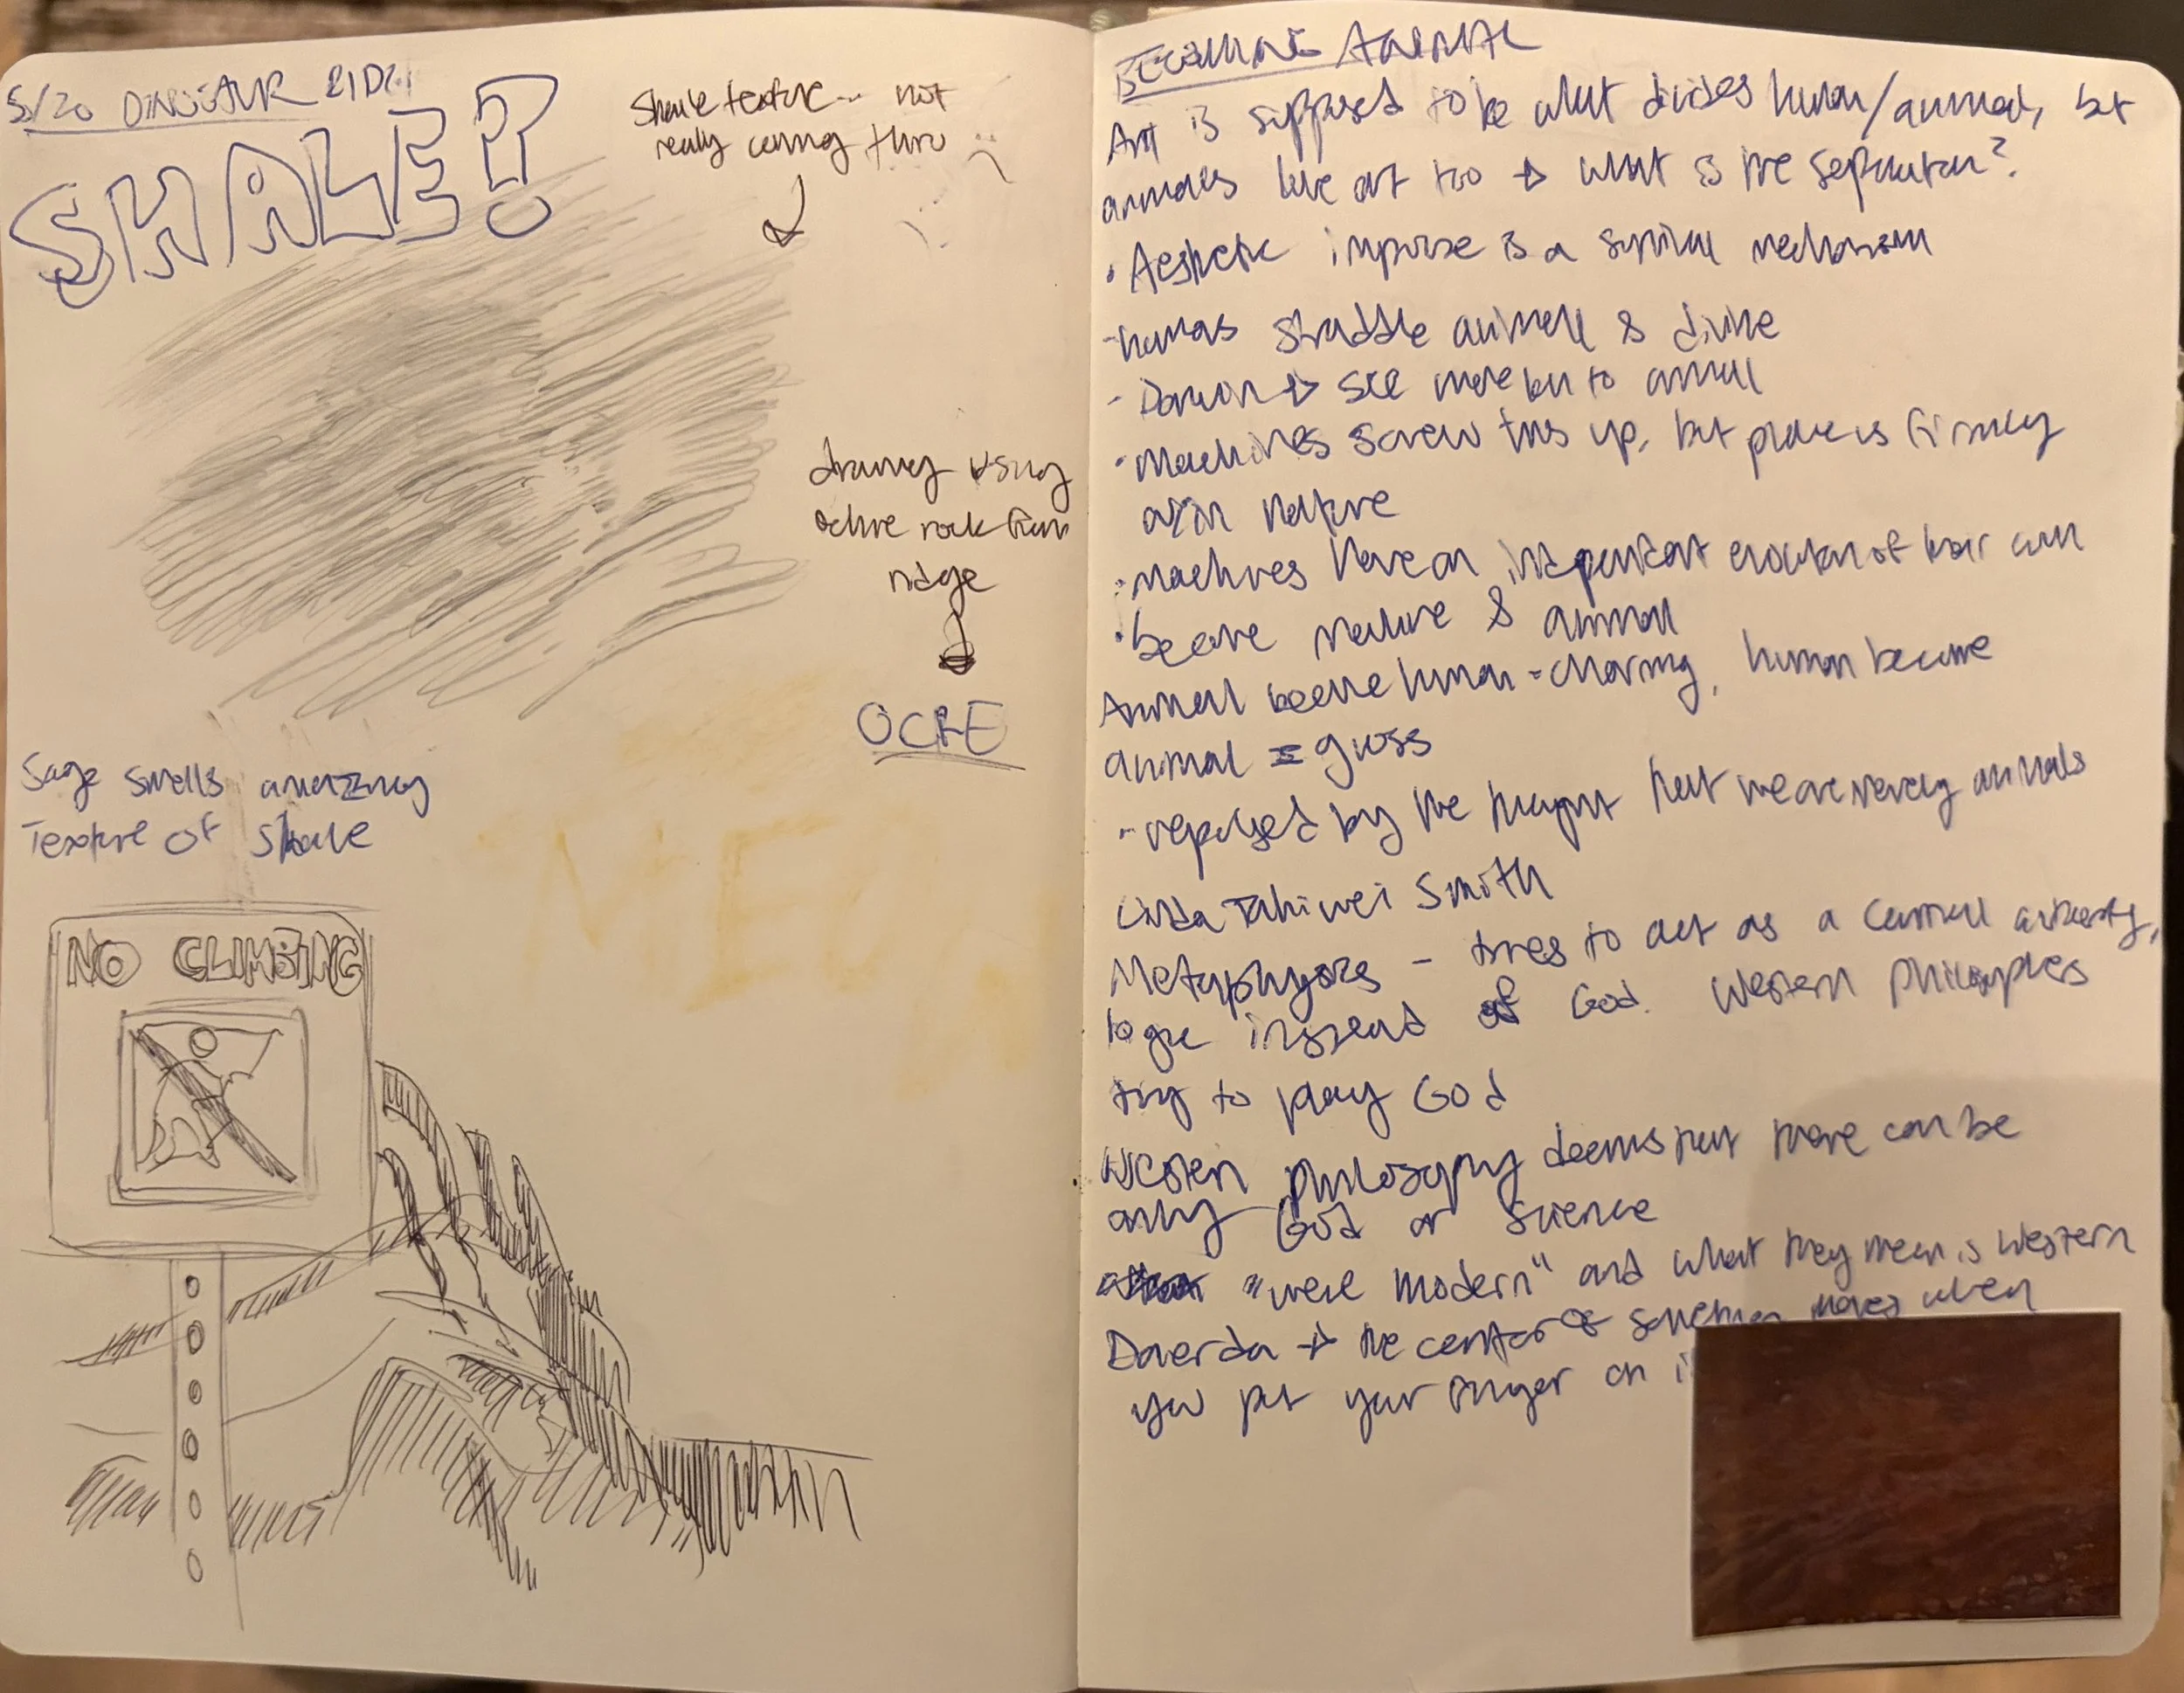 5/20 DINOSAUR RIDGE
SHALE?
Shale texture... not
really coming thru :(
drawing using
ochre rock from
ridge
OCRE
Sage smells amazing
Texture of Shale
NO CLIMBING
BECOMING ANIMAL
Art is supposed to be what divides human/animal, but
animals have art too → what is the separation?
• Aesthetic impulse is a survival mechanism
- humans straddle animal & divine
- Darwin → see more kin to animal
• Machines screw this up, but place is firmly
w/in nature
• machines have an independent evolution of their own
• become machine & animal
Animal become human = charming, human become
animal = gross
- repulsed by the thought that we are merely animals
Linda Tuhiwei Smith
Metaphysics - tries to act as a central authority,
logic instead of God. Western philosophers
try to play God
Western philosophy deems that there can be
only God or Science
"we're modern" and what they mean is Western
Derrida → the center of something moves when
you put your finger on